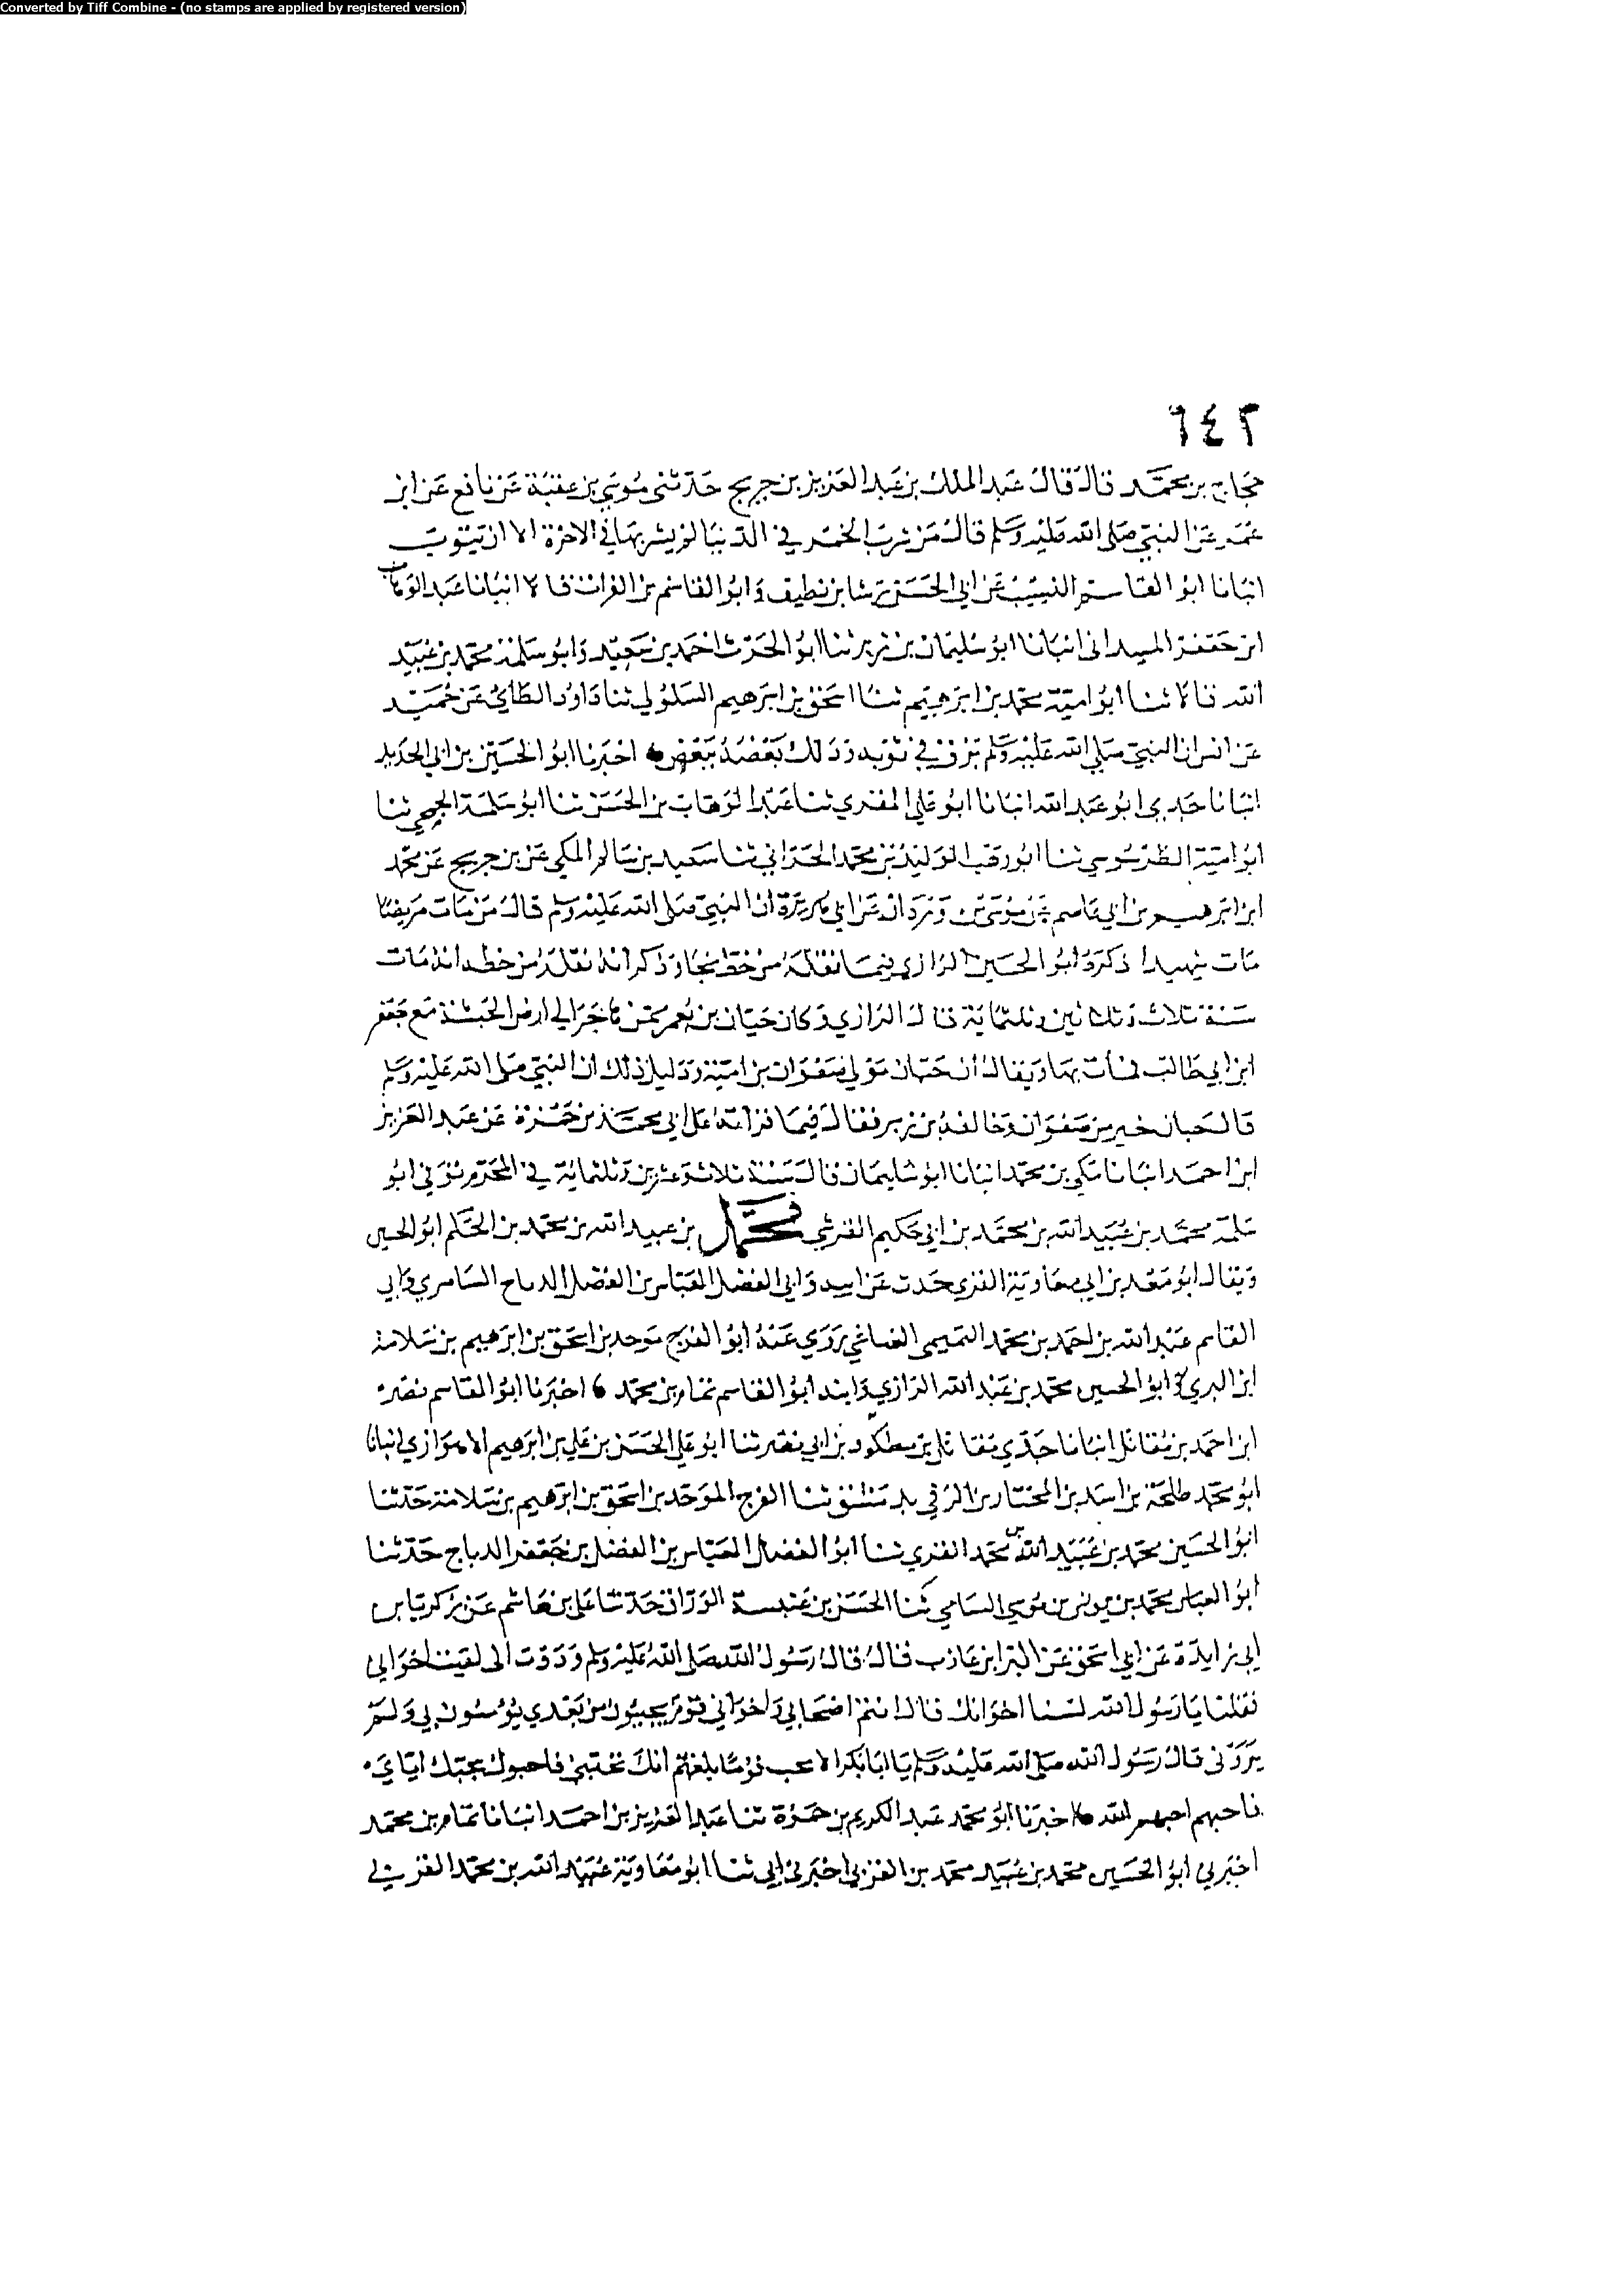 Converted by Tiff Combine - (no stamps are applied by registered version)
٦٤٢
حجاج بن محمد قال قال عبد الملك بن عبد العزيز بن جريج حدثنى موسي بن عقبة عن نافع عن ابن
عمر عن النبي صلى الله عليه وسلم قال من شرب الخمر في الدنيا لم يشربها في الاخرة الا ان يتوب
انبانا ابو القاسم النسيب عن ابي الحسن رشا بن نظيف وابو القاسم بن الفرات قالا انبانا عبد الوهاب
ابن جعفر الميدانى انبانا ابو سليمان بن زبر ثنا ابو الحرث احمد بن سعيد وابو سلمة محمد بن عبيد
الله قالا ثنا ابو امية محمد بن ابرهيم ثنا اسحق بن ابرهيم السلولي ثنا داود الطائي عن حميد
عن انس ان النبي صلي الله عليه وسلم بزق في ثوبه ودلك بعضه ببعض اخبرنا ابو الحسين بن ابي الحديد
انبانا جدي ابو عبد الله انبانا ابو علي المقري ثنا عبد الوهاب بن الحسن ثنا ابو سلمة الجمحي ثنا
ابو امية الطرسوسي ثنا ابو وهب الوليد بن محمد الحراني ثنا سعيد بن سالم المكي عن بن جريج عن محمد
ابن ابرهيم بن ابي عاصم عن موسى بن وردان عن ابي هريرة ان النبي صلى الله عليه وسلم قال من مات مريضا
مات شهيدا ذكره ابو الحسين الرازي فيما نقلته من خط نجا وذكر انه نقله من خطه انه مات
سنة ثلاث وثلاثين وثلثماية قال الرازي وكان حيان بن يعمر ممن هاجر الي ارض الحبشة مع جعفر
ابن ابي طالب فمات بها ويقال ان حيان مولي صفوان بن امية ودليل ذلك ان النبي صلى الله عليه وسلم
قال حيان خير من صفوان وخالفه بن زبر فقال فيما قراته على ابي محمد بن حمزة عن عبد العزيز
ابن احمد انبانا مكي بن محمد انبانا ابو سليمان قال سنة ثلاث وعشرين وثلثماية في المحرم توفي ابو
سلمة محمد بن عبيد الله بن محمد بن ابي حكيم القرشي محمد بن عبيد الله بن محمد بن الحكم ابو الحسين
ويقال ابو معد بن ابي معاوية القري حدث عن ابيه وابي الفضل العباس بن الفضل الدباج السامري وابي
القاسم عبد الله بن احمد بن محمد التميمي الغباغبي روي عنه ابو الفرج موحد بن اسحق بن ابرهيم بن سلامة
ابن البري وابو الحسين محمد بن عبد الله الرازي وابنه ابو القاسم تمام بن محمد اخبرنا ابو القاسم نصر
ابن احمد بن مقاتل انبانا جدي مقاتل بن مطكود بن ابي نصر ثنا ابو علي الحسن بن علي بن ابرهيم الاهوازي انبانا
ابو محمد طلحة بن اسد بن المختار بن الرقي بدمشق ثنا الفرج الموحد بن اسحق بن ابرهيم بن سلامة حدثنا
ابو الحسين محمد بن عبيد الله بن محمد القري ثنا ابو الفضل العباس بن الفضل بن جعفر الدباج حدثنا
ابو العباس محمد بن يونس بن موسي السامي ثنا الحسن بن عنبسة الوراق حدثنا علي بن هاشم عن زكريا بن
ابي زايدة عن ابي اسحق عن البرا بن عازب قال قال رسول الله صلى الله عليه وسلم وددت انى لقيت اخواني
فقلنا يا رسول الله لسنا اخوانك قال انتم اصحابي واخواني قوم يجيبون من بعدي يؤمنون بي ولم
يروني قال رسول الله صلى الله عليه وسلم يا ابا بكر الا تحب قوما بلغهم انك تحبني فاحبوك بحبك اياي
فاحبهم احبهم الله اخبرنا ابو محمد عبد الكريم بن حمزة ثنا عبد العزيز بن احمد انبانا تمام بن محمد
اخبرني ابو الحسين محمد بن عبيد محمد بن القزبي اخبرني ابي ثنا ابو معاوية عبيد الله بن محمد القزبي